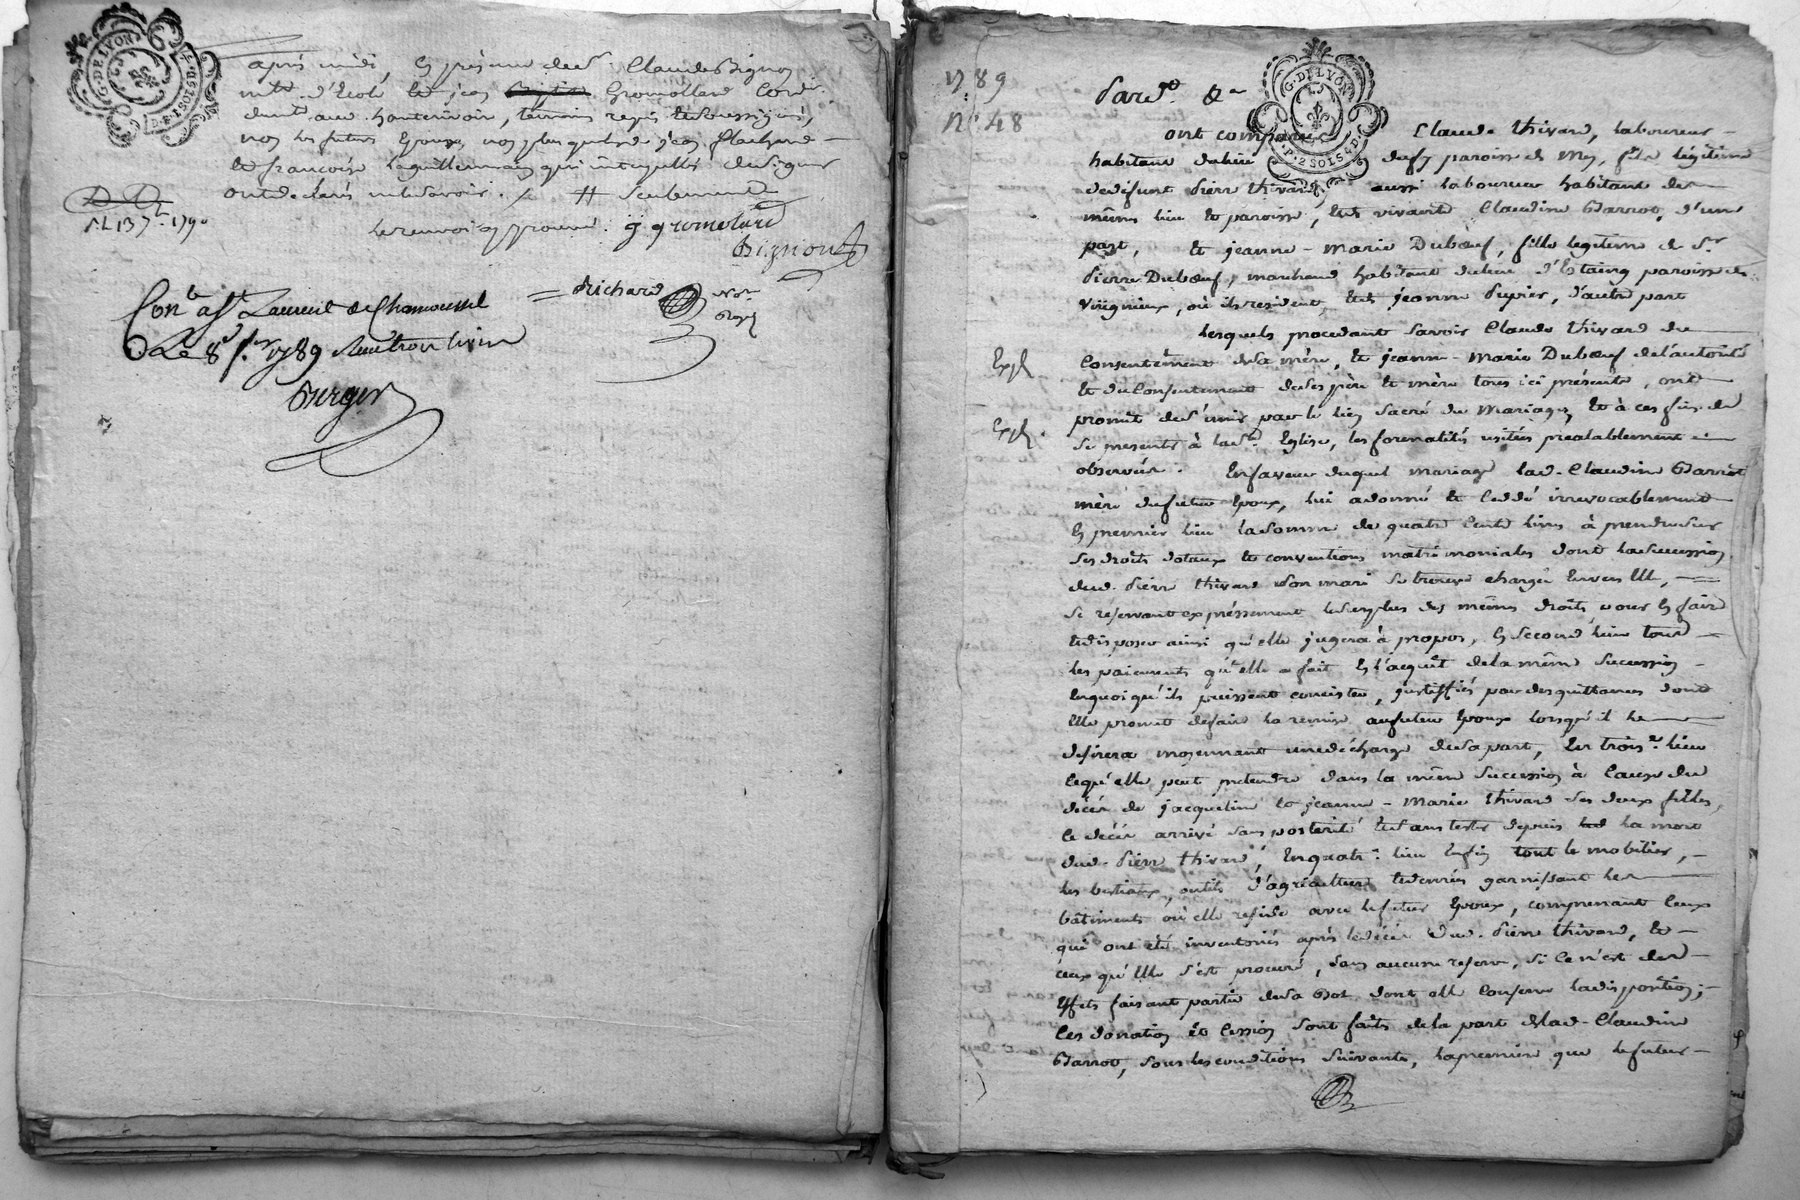 G. DE LYON
D. P. 2 SOLS 4 D.
après midi en présence de s.r Claude Bignon
m.tre d'Ecole et jean Gromollard Cord.r
dem.t aud. hauterivoir, temoins requis et soussignés,
non les futurs Epoux, non plus que led. jean flachard
et françoise qui interpellés de signer
ont declarés ne le savoir. Seulement
le renvoi approuvé. j gromolard
Bignon
DD.
s. L. 13 7.bre 1790
drichard Not.re
Royal
Con.lé à S.t Laurent de Chamousset
Le 8 1789
Berger
1789
N.° 48
G. DE LYON
P. 2 SOLS 4 D.
Pard.t &a
ont comparu Claude thivard, laboureur
habitant du lieu paroisse de Mey, fils légitime
de défunt Pierre thivard, aussi laboureur habitant des
mêmes lieu et paroisse, et de vivante Claudine Barrot, d'une
part, et jeanne-Marie Dubœuf, fille legitime de S.r
Pierre Dubœuf, marchand habitant du lieu d'Estaing paroisse de
Virigneux, où ils resident, et de jeanne Dupier, d'autre part
Lesquels procedant savoir Claude thivard du
Exp.
Consentement de sa mère, et jeanne-Marie Dubœuf de l'autorité
et du Consentement de ses père et mère tous ici présents, ont
promit de s'unir par le lien sacré du Mariage, et à ces fins de
Exp.
se presenter à lad.te Eglise, les formalités usitées prealablement
observées. En faveur duquel mariage lad. Claudine Barrot
mère du futur Epoux, lui a donné et Ceddé irrevocablement
En premier lieu la somme de quatre Cents livres à prendre sur
ses droits dotaux et conventions matrimoniales dont la succession
dud. Pierre thivard son mari se trouve chargée Envers Elle,
se réservant expréssement le surplus des mêmes droits pour En faire
et disposer ainsi qu'elle jugera à propos, En second lieu tous
les paiements qu'elle a fait En l'acquit de la même succession
En quoi qu'ils puissent consister, justiffiés par des quittances dont
Elle promet de faire la remise au futur Epoux lorsqu'il le
desirera moyennant une décharge de sa part, En trois.e lieu
Ce qu'elle peut pretendre dans la même succession à cause du
décès de jacqueline et jeanne-Marie thivard ses deux filles,
ce décès arrivé sans posterité et sans tester depuis la mort
dud. Pierre thivard, En quatr.e lieu Enfin tout le mobilier,
les bestiaux, outils d'agriculture et denrées garnissant les
bâtiments où elle reside avec le futur Epoux, comprenant Ceux
qui ont été inventoriés après le décès dud. Pierre thivard, et
ceux qu'Elle s'est procuré, sans aucune reserve, si ce n'est des
Effets faisant partie de sa Dot dont elle Conserve la disposition;
Ces donation et Cession sont faites de la part de lad. Claudine
Barrot, sous les conditions suivantes, la premiere que le futur